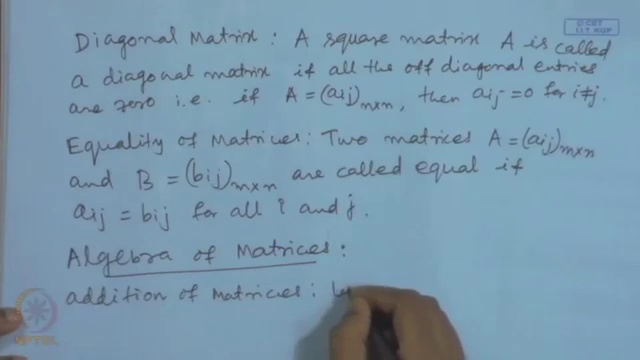 © CET
I.I.T. KGP
Diagonal Matrix : A square matrix A is called
a diagonal matrix if all the off diagonal entries
are zero i.e. if A = (aij)n×n, then aij = 0 for i≠j.
Equality of Matrices: Two matrices A = (aij)m×n
and B = (bij)m×n are called equal if
aij = bij for all i and j.
Algebra of Matrices:
addition of Matrices:
NPTEL